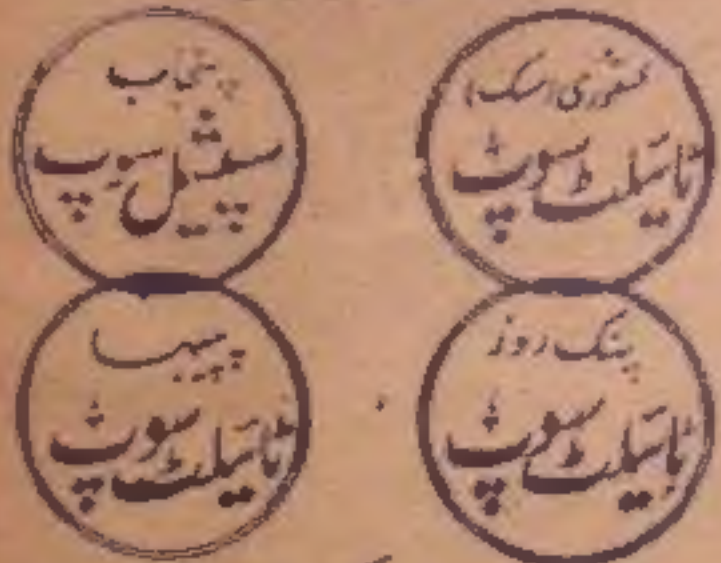 کستوری (مسک)
ٹائیلٹ سوپ
پنجاب
سپیشیل سوپ
پنک روز
ٹائیلٹ سوپ
ٹائیلٹ سوپ